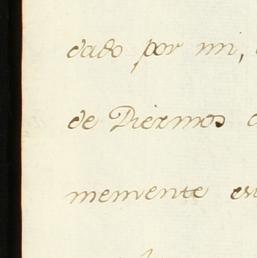 dado por mi,
de Diezmos
memente